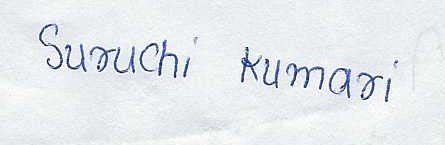 Suruchi Kumari